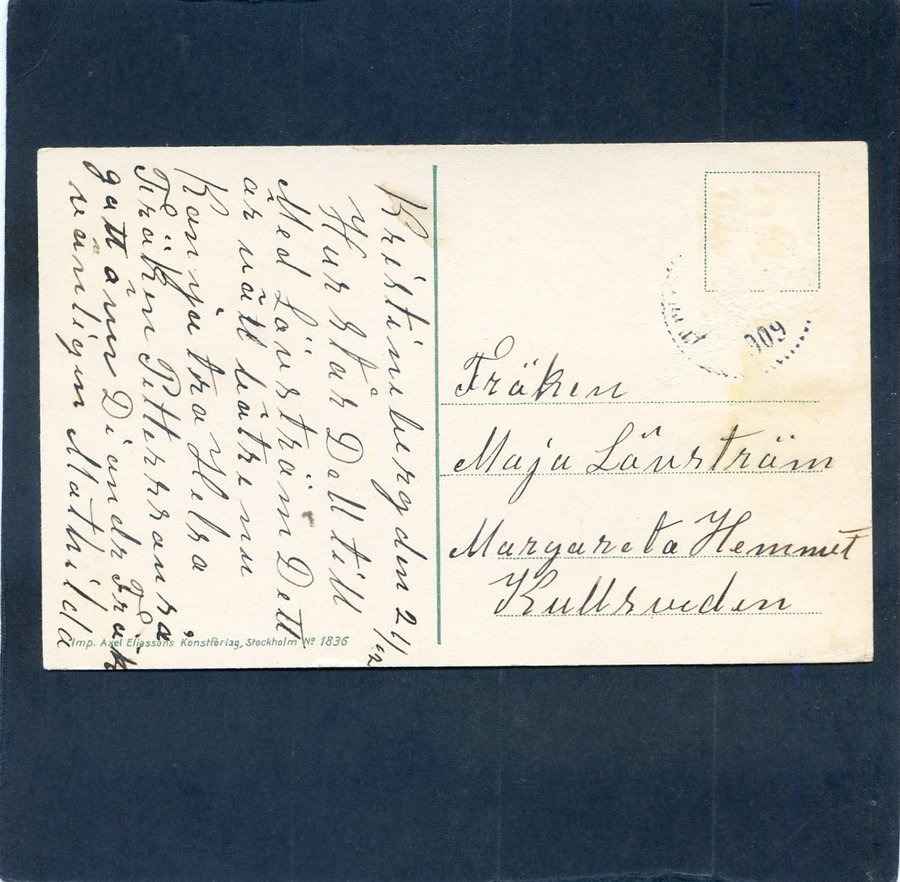 Kristineberg den 21/12
Hur står Dett till
Med Lövström Dett
är väll bätre nu
Kan ja tra Helsa
Fröken Petterson så
gått ännu Di andr Frök
vänligen Mathilda
Imp. Axel Eliassons Konstförlag, Stockholm No 1836
909
Fröken
Maja Lövström
Margareta Hemmet
Kullsveden